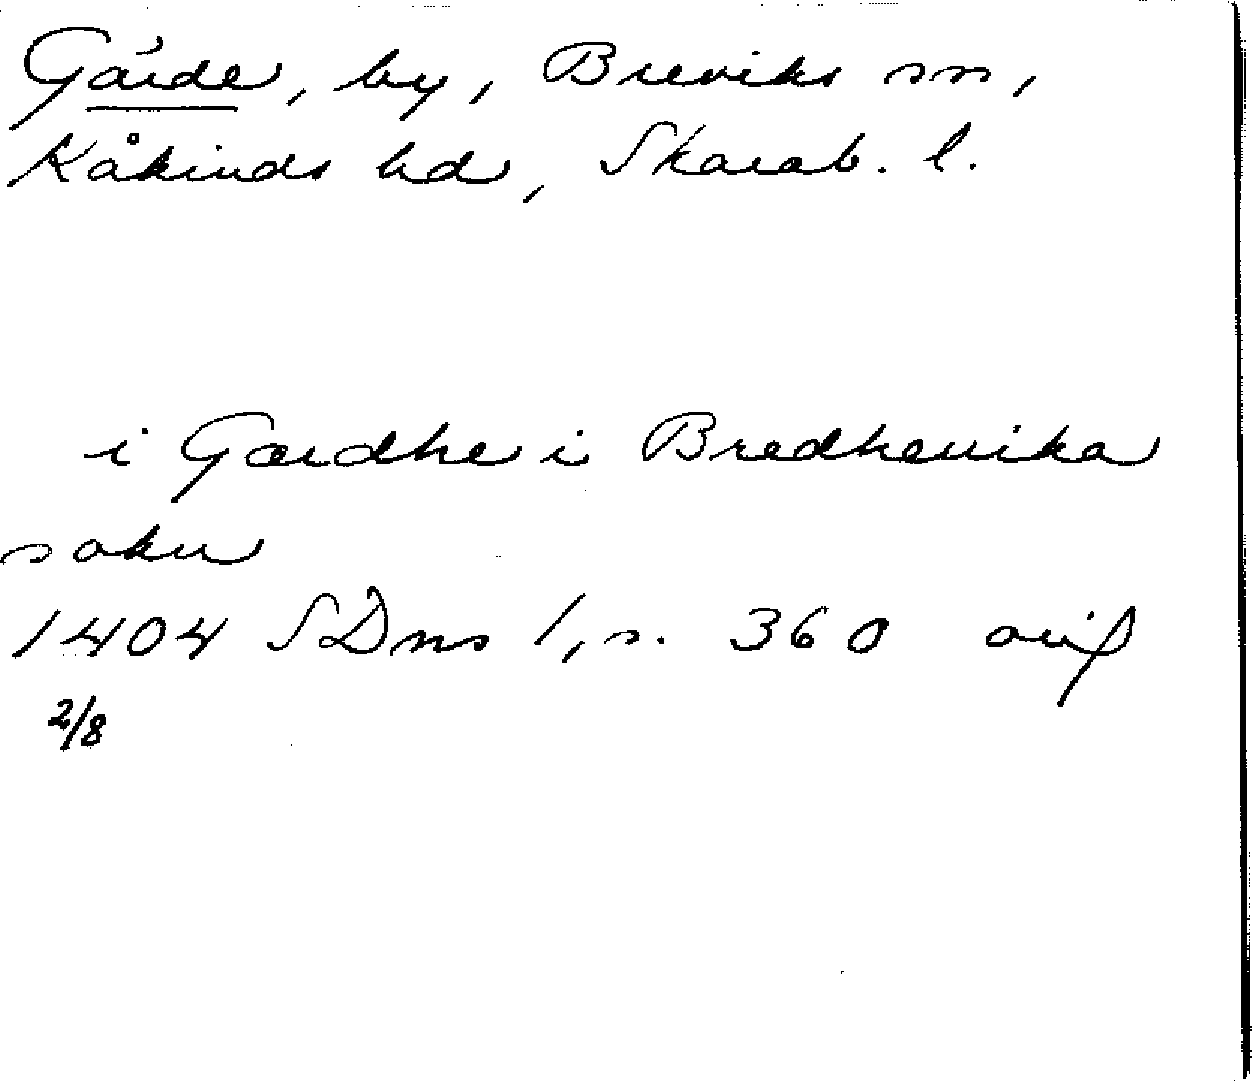 Gärde, by, Breviks sn,
Kåkinds hd, Skarab. l.
i Gærdhe i Bredheuika
sokn
1404 SDns 1, s. 360 orig
2/8